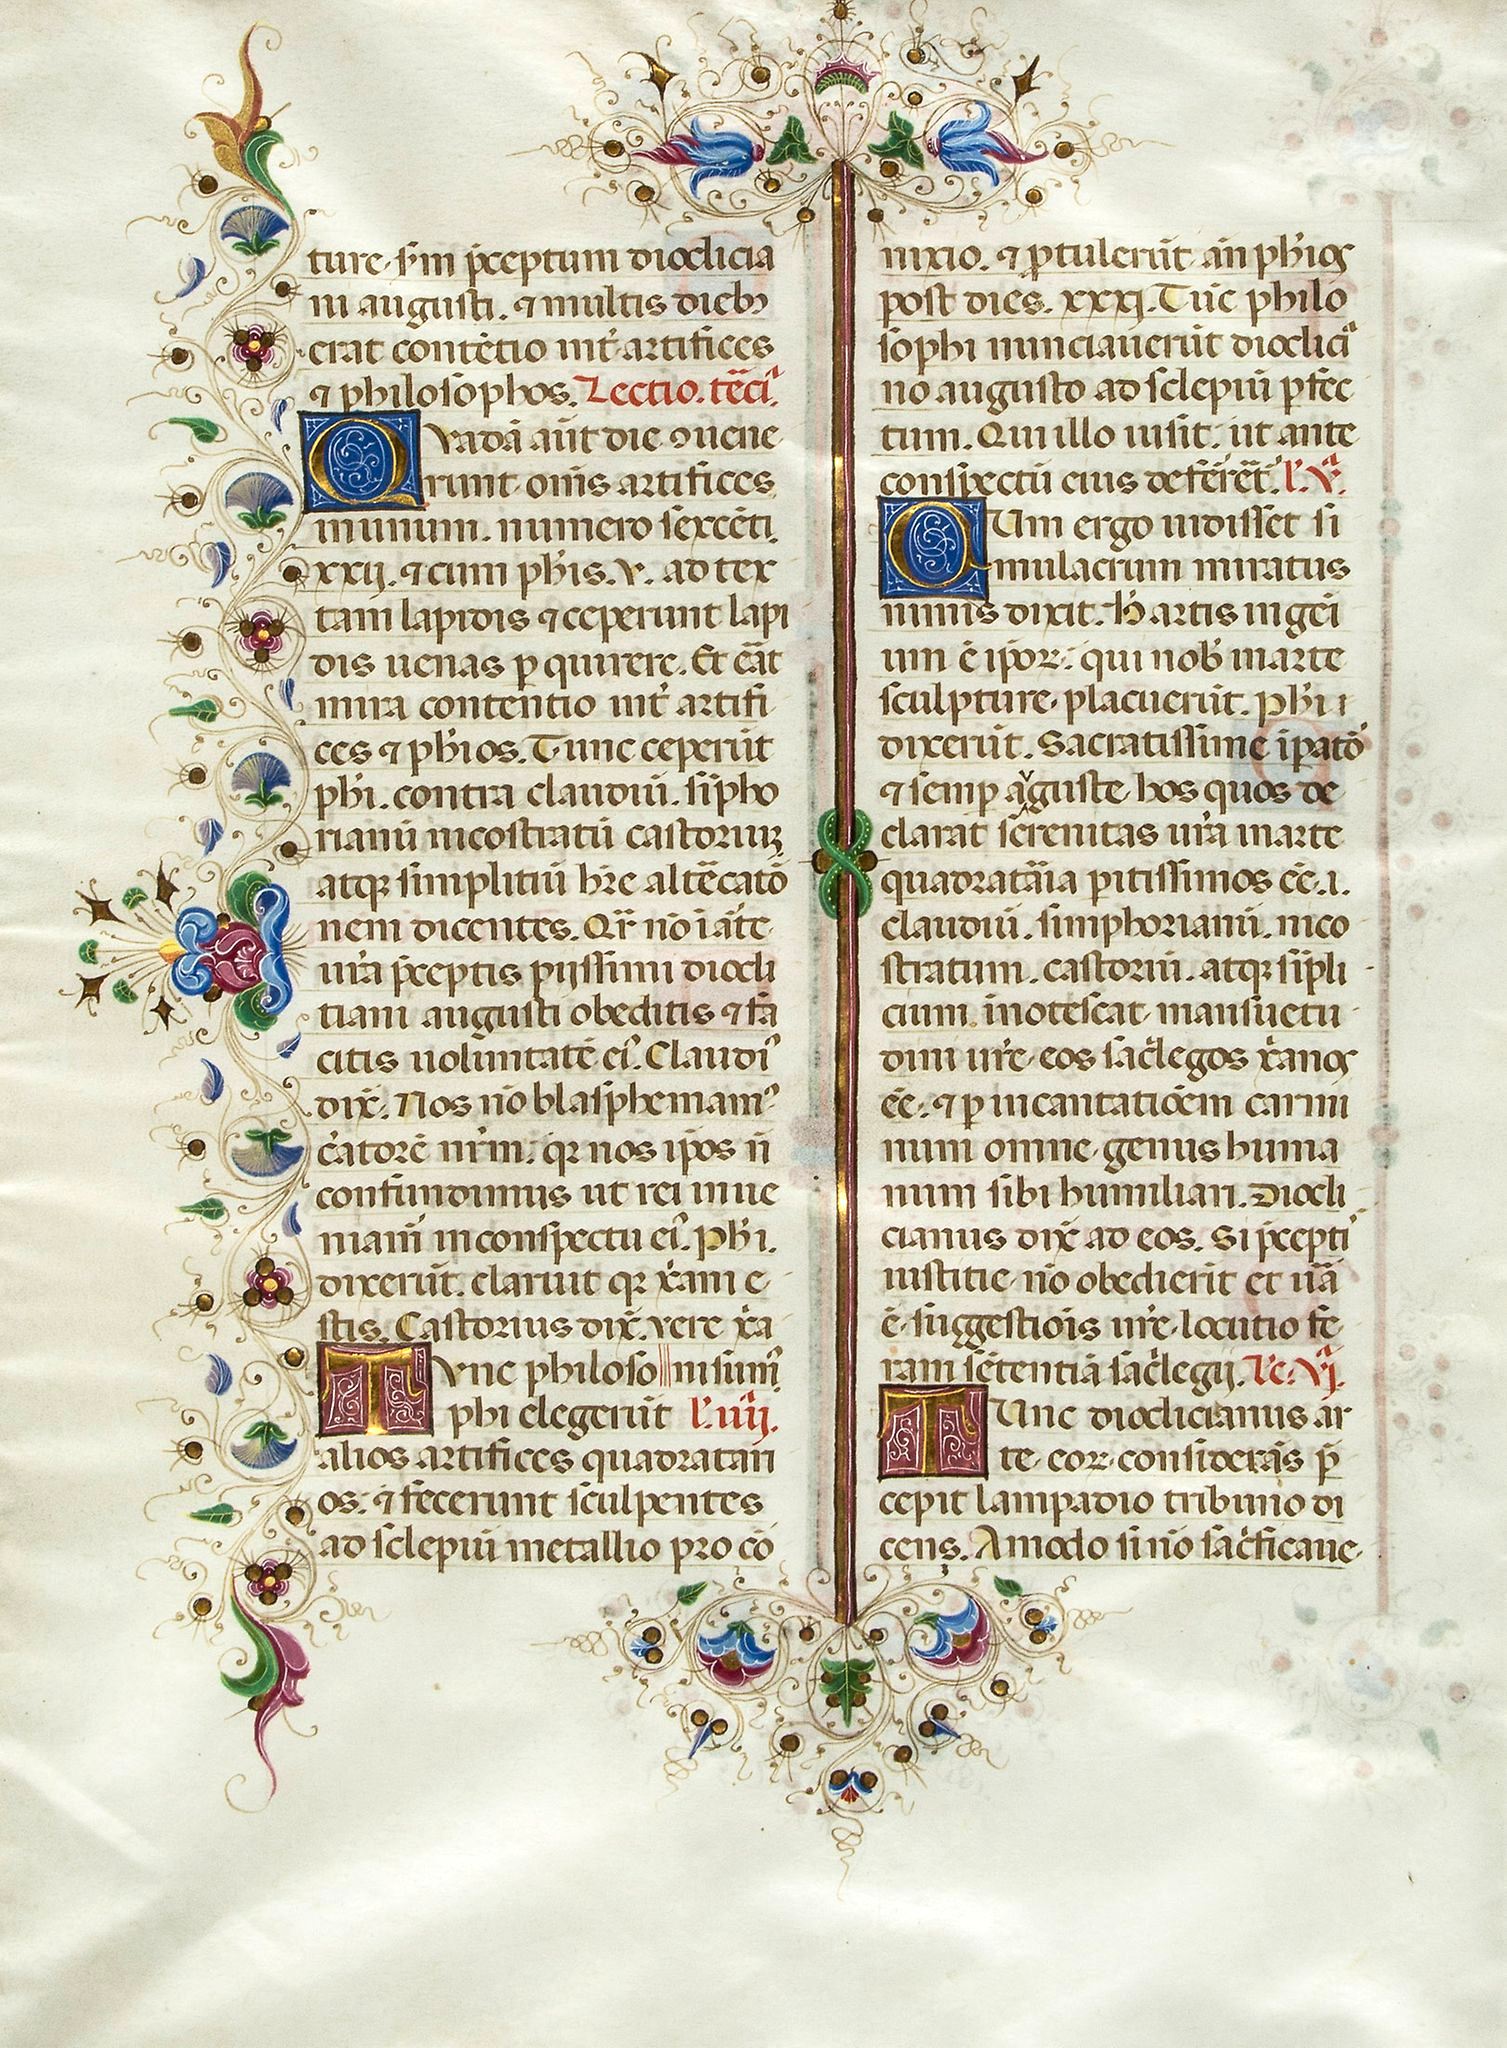 ture. s'm p̄ceptum dioclicia
ni augusti. ⁊ multis dieb⁊
erat contētio int̄ artifices
⁊ philosophos. Lectio. tēcia.
Quadā aūt die ꝯuene
runt om̄s artifices
munum. numero sexcēti
xxij. ⁊ cum ph̄is. v. ad tex
tam lapidis ⁊ ceperunt lapi
dis uenas ꝑquirere. Et erāt
mira contentio int̄ artifi
ces ⁊ ph̄ios. Tunc ceperūt
ph̄i. contra claudiū. sīpho
rianū nicostratū castoriuꝫ
atqꝫ simplitiū h̄re altēcatō
nem dicentes. Qr̄ nō i ar̄te
ur̄a p̄ceptis pijssimi diocli
tiani augusti obeditis ⁊ fa
citis uolūntatē eiꝰ. Claudiꝰ
dix̄. Nos nō blasphemamꝰ
c̄atorē nr̄m. qꝫ nos ip̄os ñ
confundimus ut rei inue
niam̄ in conspectu eiꝰ. Ph̄i.
dixerūt. claruit qꝫ x̄ani e
stis. Castorius dix̄. vere x̄a
Tunc philoso || ni sumꝰ
phi elegerūt l'. iiij.
alios artifices quadratari
os. ⁊ fecerunt sculpentes
ad sclepiū metallio pro cō
nixio. ⁊ ꝓtulerūt an̄ ph̄ios
post dies. xxxj. Tūc philo
sophi nunciauerūt dioclicia
no augusto ad sclepiū ꝑfec
tum. Qui illo iusit. ut ante
conspectū eius deferret̄. l'. v.
Cum ergo uidisset si
mulacrum miratus
nimis dixit. h̄ artis ingeī
um ē ip̄oꝝ. qui nob̄ in arte
sculpture. placuerūt. Ph̄i
dixerūt. Sacratissime īpatō
⁊ semꝑ auguste. hos quos de
clarat serenitas ur̄a in arte
quadratāia ꝑitissimos eē. i.
claudiū. simphorianū. nico
stratum. castoriū. atqꝫ sīpli
cium. inotescat. mansuetu
dini ur̄e. eos sac̄legos x̄anos
eē. ⁊ ꝑ incantatiōem carmi
num omne genus huma
num sibi humiliari. Diocli
cianus dix̄ ad eos. Si p̄cepti
iustitie nō obedierīt et uā
ē suggestiōis ur̄e. locutio fe
ram sētentiā sac̄legij. Le. vj.
Tunc dioclicianus ar
te. eoꝝ. considerās p̄
cepit lampadio tribuno di
cens. Amodo si nō sac̄ficaue